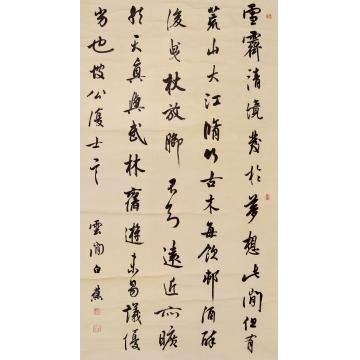 雪霽清境發於夢想此間但有
荒山大江脩竹古木每飲邨酒醉
後曳杖放腳不知遠近亦曠
然天真與武林舊遊未易議優
劣也坡公復士言
雲間白蕉